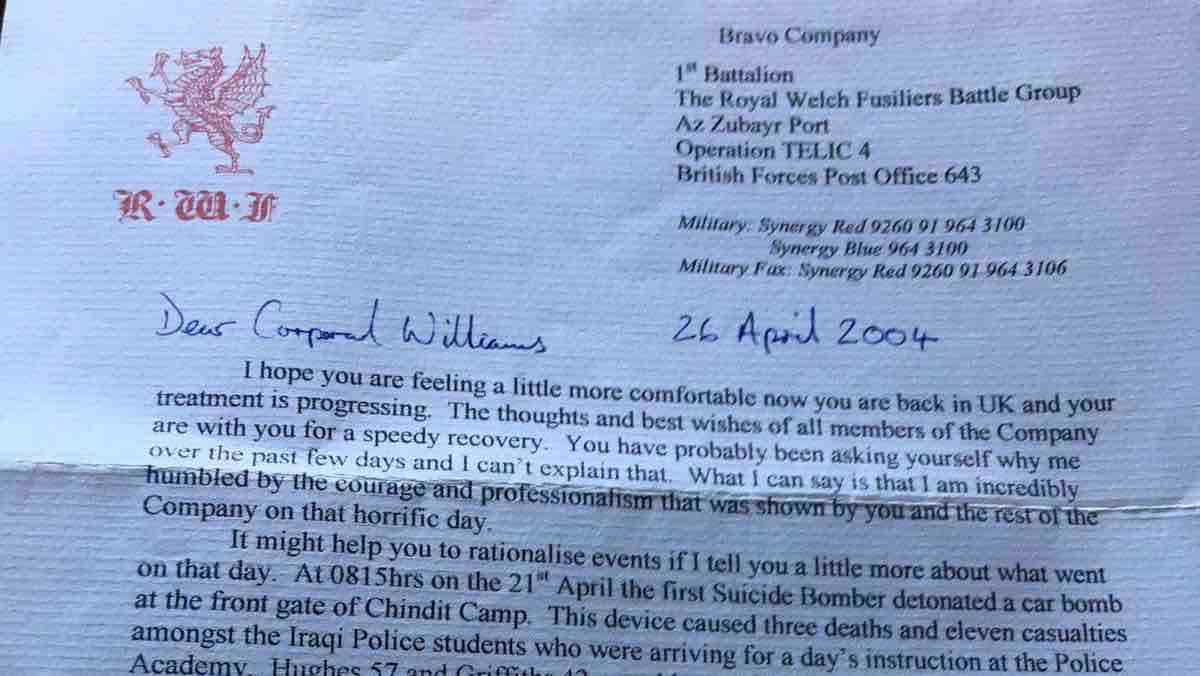 R·W·F
Bravo Company
1st Battalion
The Royal Welch Fusiliers Battle Group
Az Zubayr Port
Operation TELIC 4
British Forces Post Office 643
Military: Synergy Red 9260 91 964 3100
Synergy Blue 964 3100
Military Fax: Synergy Red 9260 91 964 3106
Dear Corporal Williams
26 April 2004
I hope you are feeling a little more comfortable now you are back in UK and your
treatment is progressing. The thoughts and best wishes of all members of the Company
are with you for a speedy recovery. You have probably been asking yourself why me
over the past few days and I can't explain that. What I can say is that I am incredibly
humbled by the courage and professionalism that was shown by you and the rest of the
Company on that horrific day.
It might help you to rationalise events if I tell you a little more about what went
on that day. At 0815hrs on the 21st April the first Suicide Bomber detonated a car bomb
at the front gate of Chindit Camp. This device caused three deaths and eleven casualties
amongst the Iraqi Police students who were arriving for a day's instruction at the Police
Academy. Hughes 57 and Griffiths 42